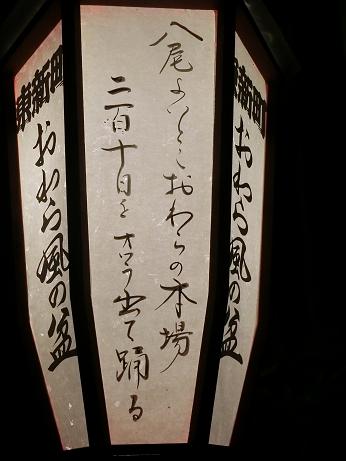 東新町
おわら風の盆
八尾よいとこおわらの本場
二百十日を オワラ出て踊る
東新町
おわら風の盆